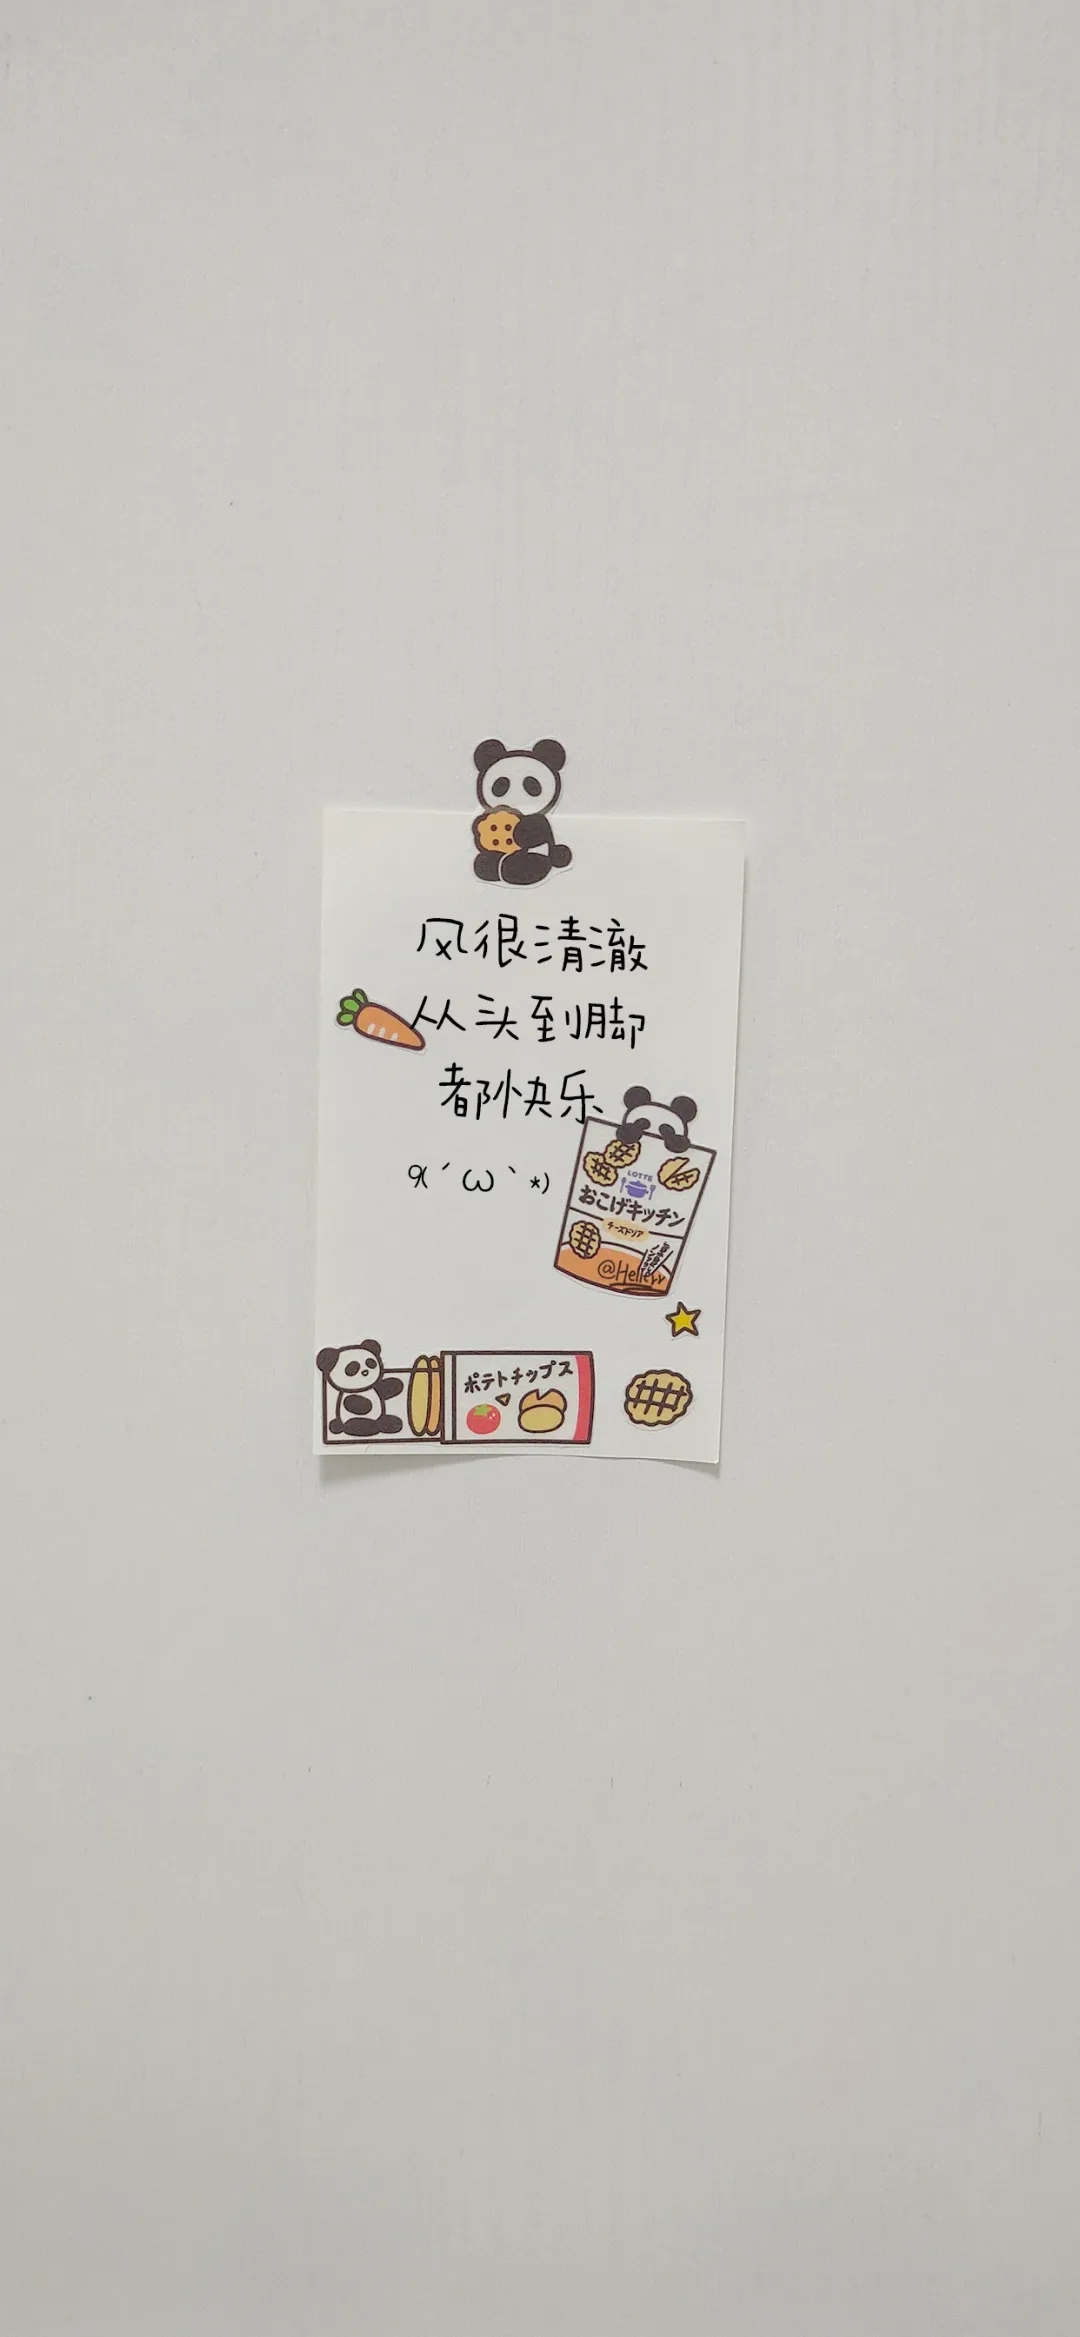 风很清澈
从头到脚
都快乐
९(´ω`*)
LOTTE
おこげキッチン
チーズドリア
@Hellery
ポテトチップス